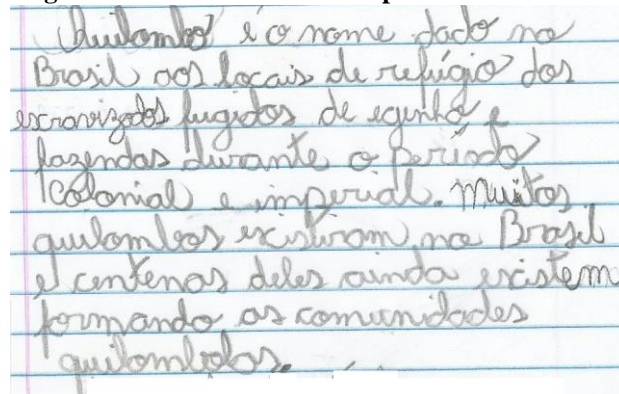 Quilombo é o nome dado no
Brasil aos locais de refúgio dos
escravizados fugidos de eginho e
fazendas durante o período
colonial e imperial. Muitos
quilombos existiram no Brasil
e centenas deles ainda existem
formando as comunidades
quilombolas.